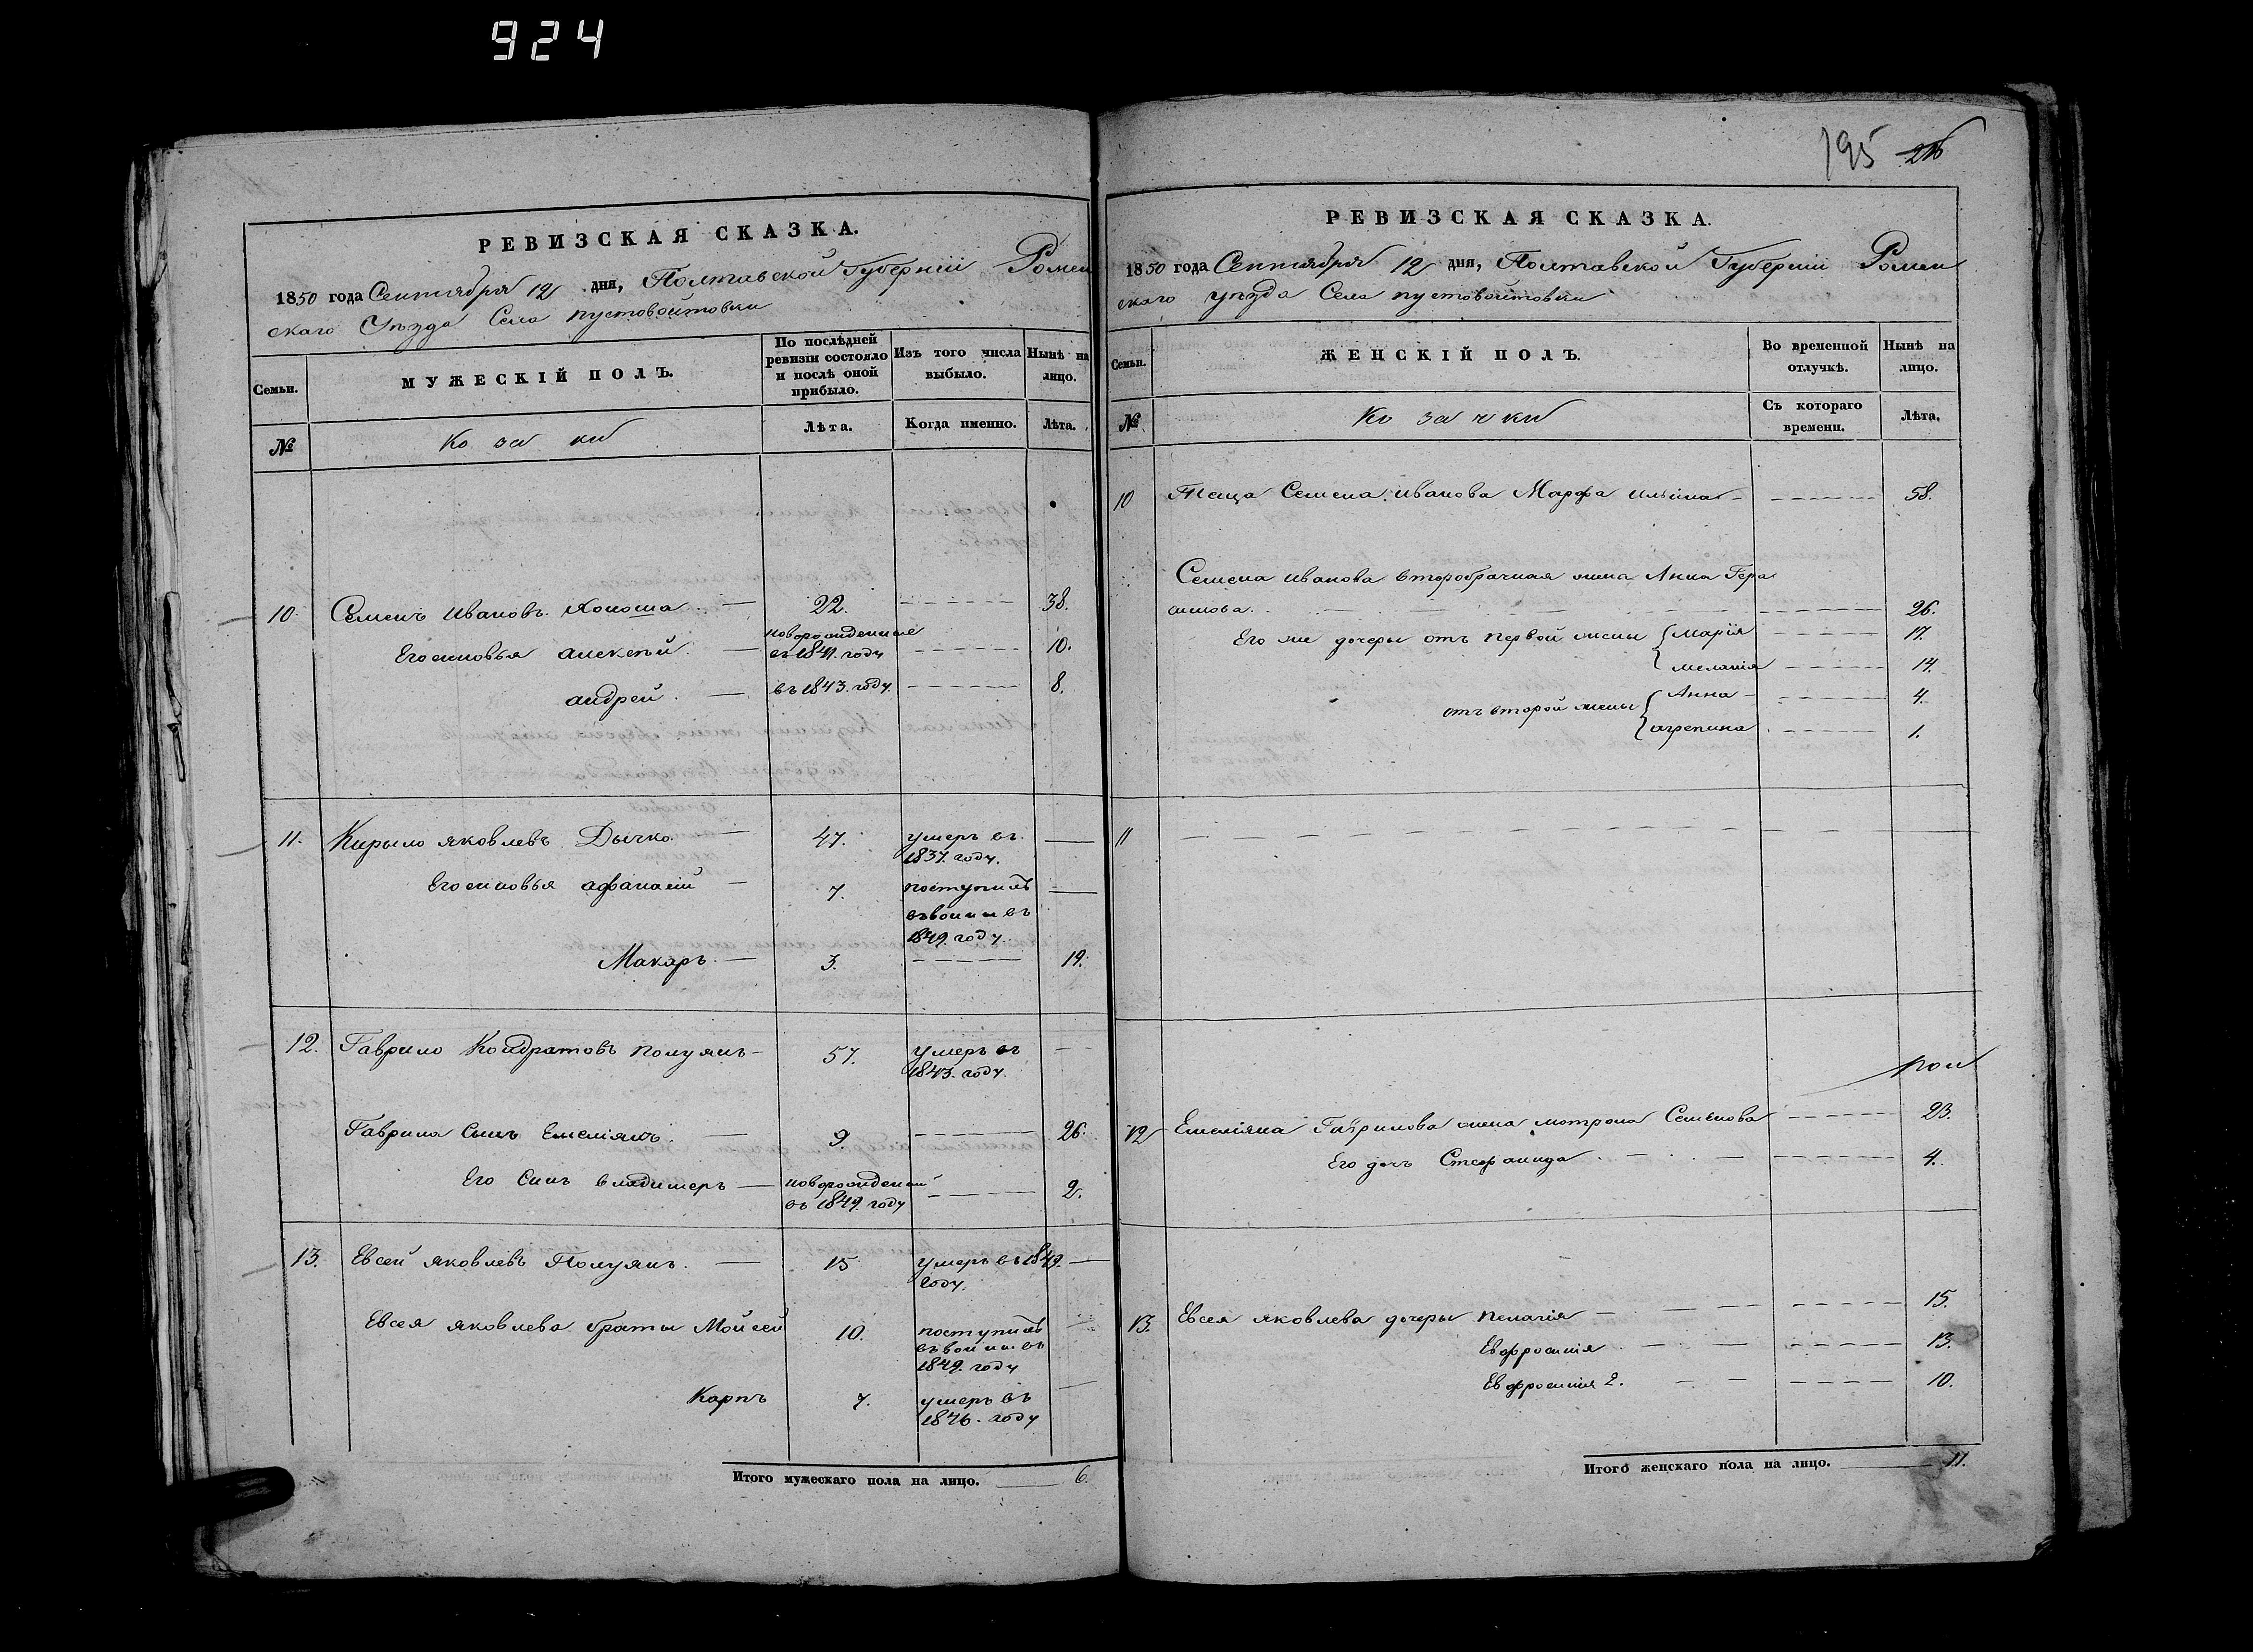 924
195 216
РЕВИЗСКАЯ СКАЗКА.
1850 года Сентября 12 дня, Полтавской Губерніи Ромен
скаго Уѣзда Села пустовойтовки
Семьи.
МУЖЕСКІЙ ПОЛЪ.
По послѣдней ревизіи состояло и послѣ оной прибыло.
Изъ того числа выбыло.
Нынѣ на лицо.
№
Козаки
Лѣта.
Когда именно.
Лѣта.
10. Семенъ Ивановъ — 22. — 38.
Его сыновья алексѣй. — новорожденные въ 1841. году — 10.
андрей. — въ 1843. году. — 8.
11. Кирыло яковлевъ Дычко. — 47. умеръ въ —
1837. году.
Его сыновья афанасій — 7. поступилъ —
въ
1849. году.
Макаръ. — 3. — 19.
12. Гаврило Кондратовъ полуянъ — 57. умеръ въ —
1843. году.
Гаврила Сынъ Емеліянъ. — 9. — 26.
Его Сынъ владимеръ — новорожденый — 2.
въ 1849. году
13. Евсей яковлевъ Полуянъ. — 15 умеръ въ 1849. —
году.
Евсея яковлева браты Мойсей 10. поступилъ —
въ
1849. году
Карпъ 7. умеръ въ —
1846. году
Итого мужескаго пола на лицо. 6.
РЕВИЗСКАЯ СКАЗКА.
1850 года Сентября 12 дня, Полтавской Губерніи Ромен
скаго уѣзда Села пустовойтовки
Семьи.
ЖЕНСКІЙ ПОЛЪ.
Во временной отлучкѣ.
Нынѣ на лицо.
№
Козачки
Съ котораго времени.
Лѣта.
10 Теща Семена Иванова Марфа ильина — 58.
Семена Иванова второбрачная жена Анна Гера
симова. — 26.
Его же дочеры отъ первой жены { Марія — 17.
меланія — 14.
отъ второй жены { Анна — 4.
агрепина — 1.
11 — — —
12 Емеліяна Гаврилова жена мотрона Семенова — 23.
Его дочь Стефанида. — 4.
13. Евсея яковлева дочеры пелагія — 15.
Евфросинія — 13.
Евфросинія 2. — 10.
Итого женскаго пола на лицо. 11.